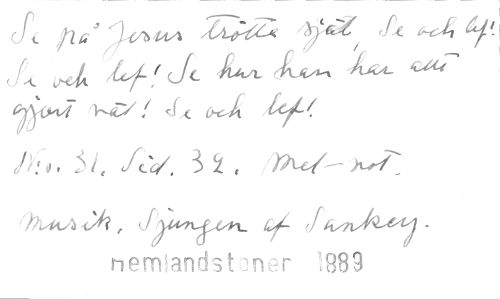 Se på Jesus trötta själ, Se och lef!
Se och lef! Se hur han har allt
gjort väl! Se och lef!
No. 31. Sid. 32. Mel-not.
Musik. Sjungen af Sankey.
Hemlandstoner 1889